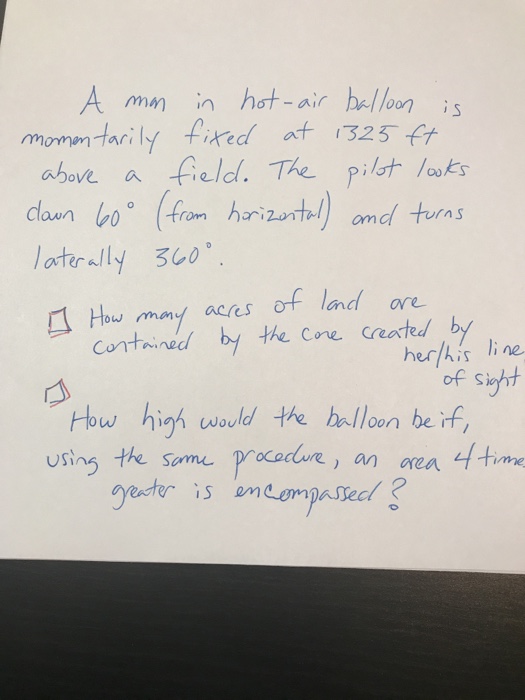 A man in hot-air balloon is
momentarily fixed at 1325 ft
above a field. The pilot looks
down 60° (from horizontal) and turns
laterally 360°.
How many acres of land are
contained by the cone created by
her/his line
of sight
How high would the balloon be if,
using the same procedure, an area 4 time
greater is encompassed?